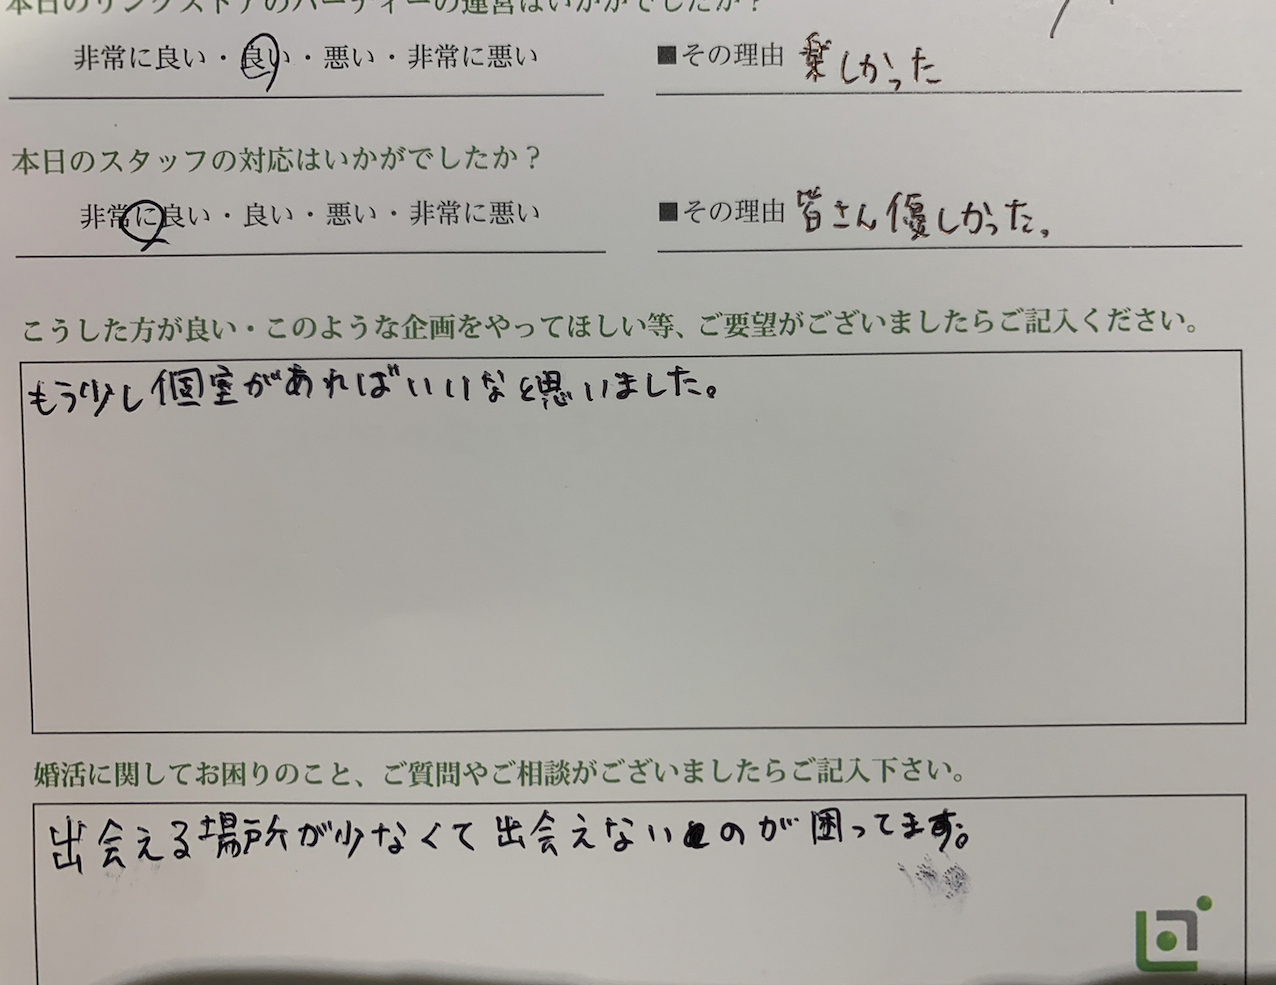 本日のリンクストアのパーティーの運営はいかがでしたか？
非常に良い・良い・悪い・非常に悪い ■その理由 楽しかった
本日のスタッフの対応はいかがでしたか？
非常に良い・良い・悪い・非常に悪い ■その理由 皆さん優しかった。
こうした方が良い・このような企画をやってほしい等、ご要望がございましたらご記入ください。
もう少し個室があればいいなと思いました。
婚活に関してお困りのこと、ご質問やご相談がございましたらご記入下さい。
出会える場所が少なくて出会えないのが困ってます。